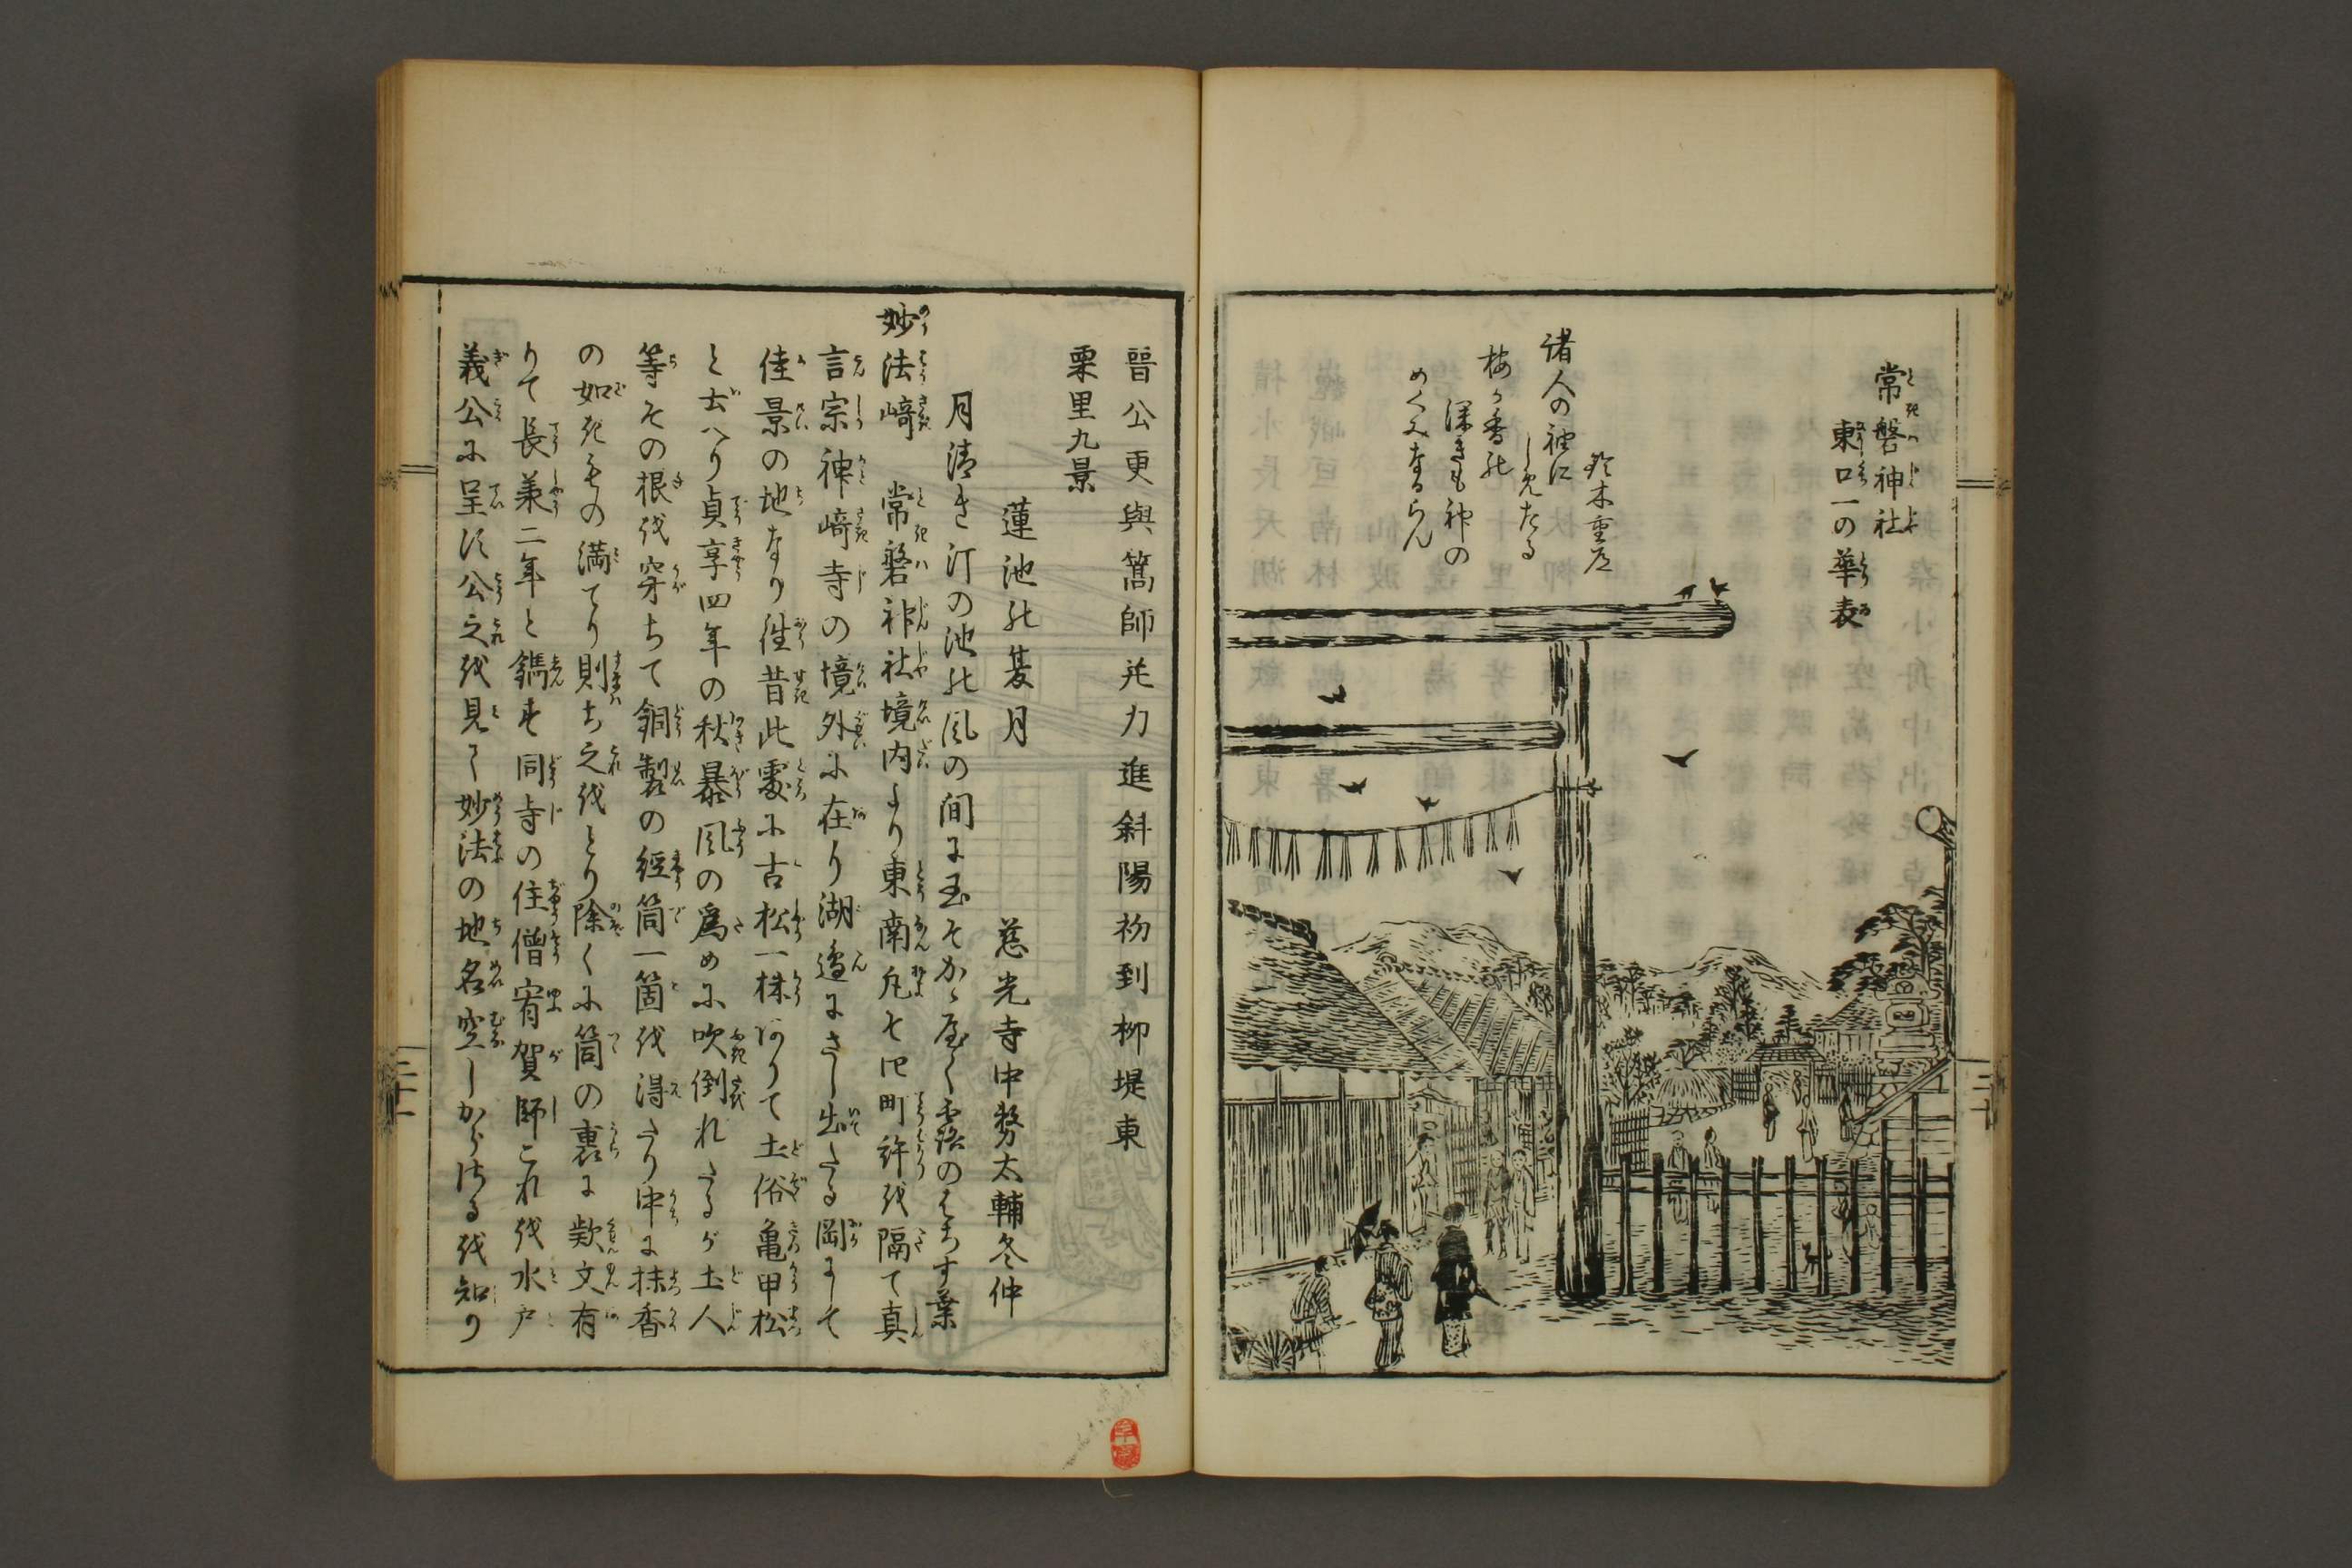 常磐神社
東口一の華表
鈴木重
諸人の袖に
しみたる
梅か香は
深きも神の
めくみなるらん
晉公更與篙師并力進斜陽初到柳堤東
栗里九景
蓮池の夏月
慈光寺中務太輔冬仲
月清き汀の池の風の間に玉そかゝやく露のはちす葉
妙法﨑 常磐神社境内より東南凡そ四町許を隔て真
言宗神﨑寺の境外に在り湖邉にさし出たる岡にして
佳景の地なり往昔此處に古松一株ありて土俗亀甲松
と云へり貞享四年の秋暴風の爲めに吹倒れたるが土人
等その根を穿ちて銅製の經筒一箇を得たり中に抹香
の如きもの満てり則ち之をとり除くに筒の裏に欵文有
りて長兼二年と鐫す同寺の住僧宥賀師これを水戸
義公に呈す公之を見て妙法の地名空しからさるを知り
二十
二十一